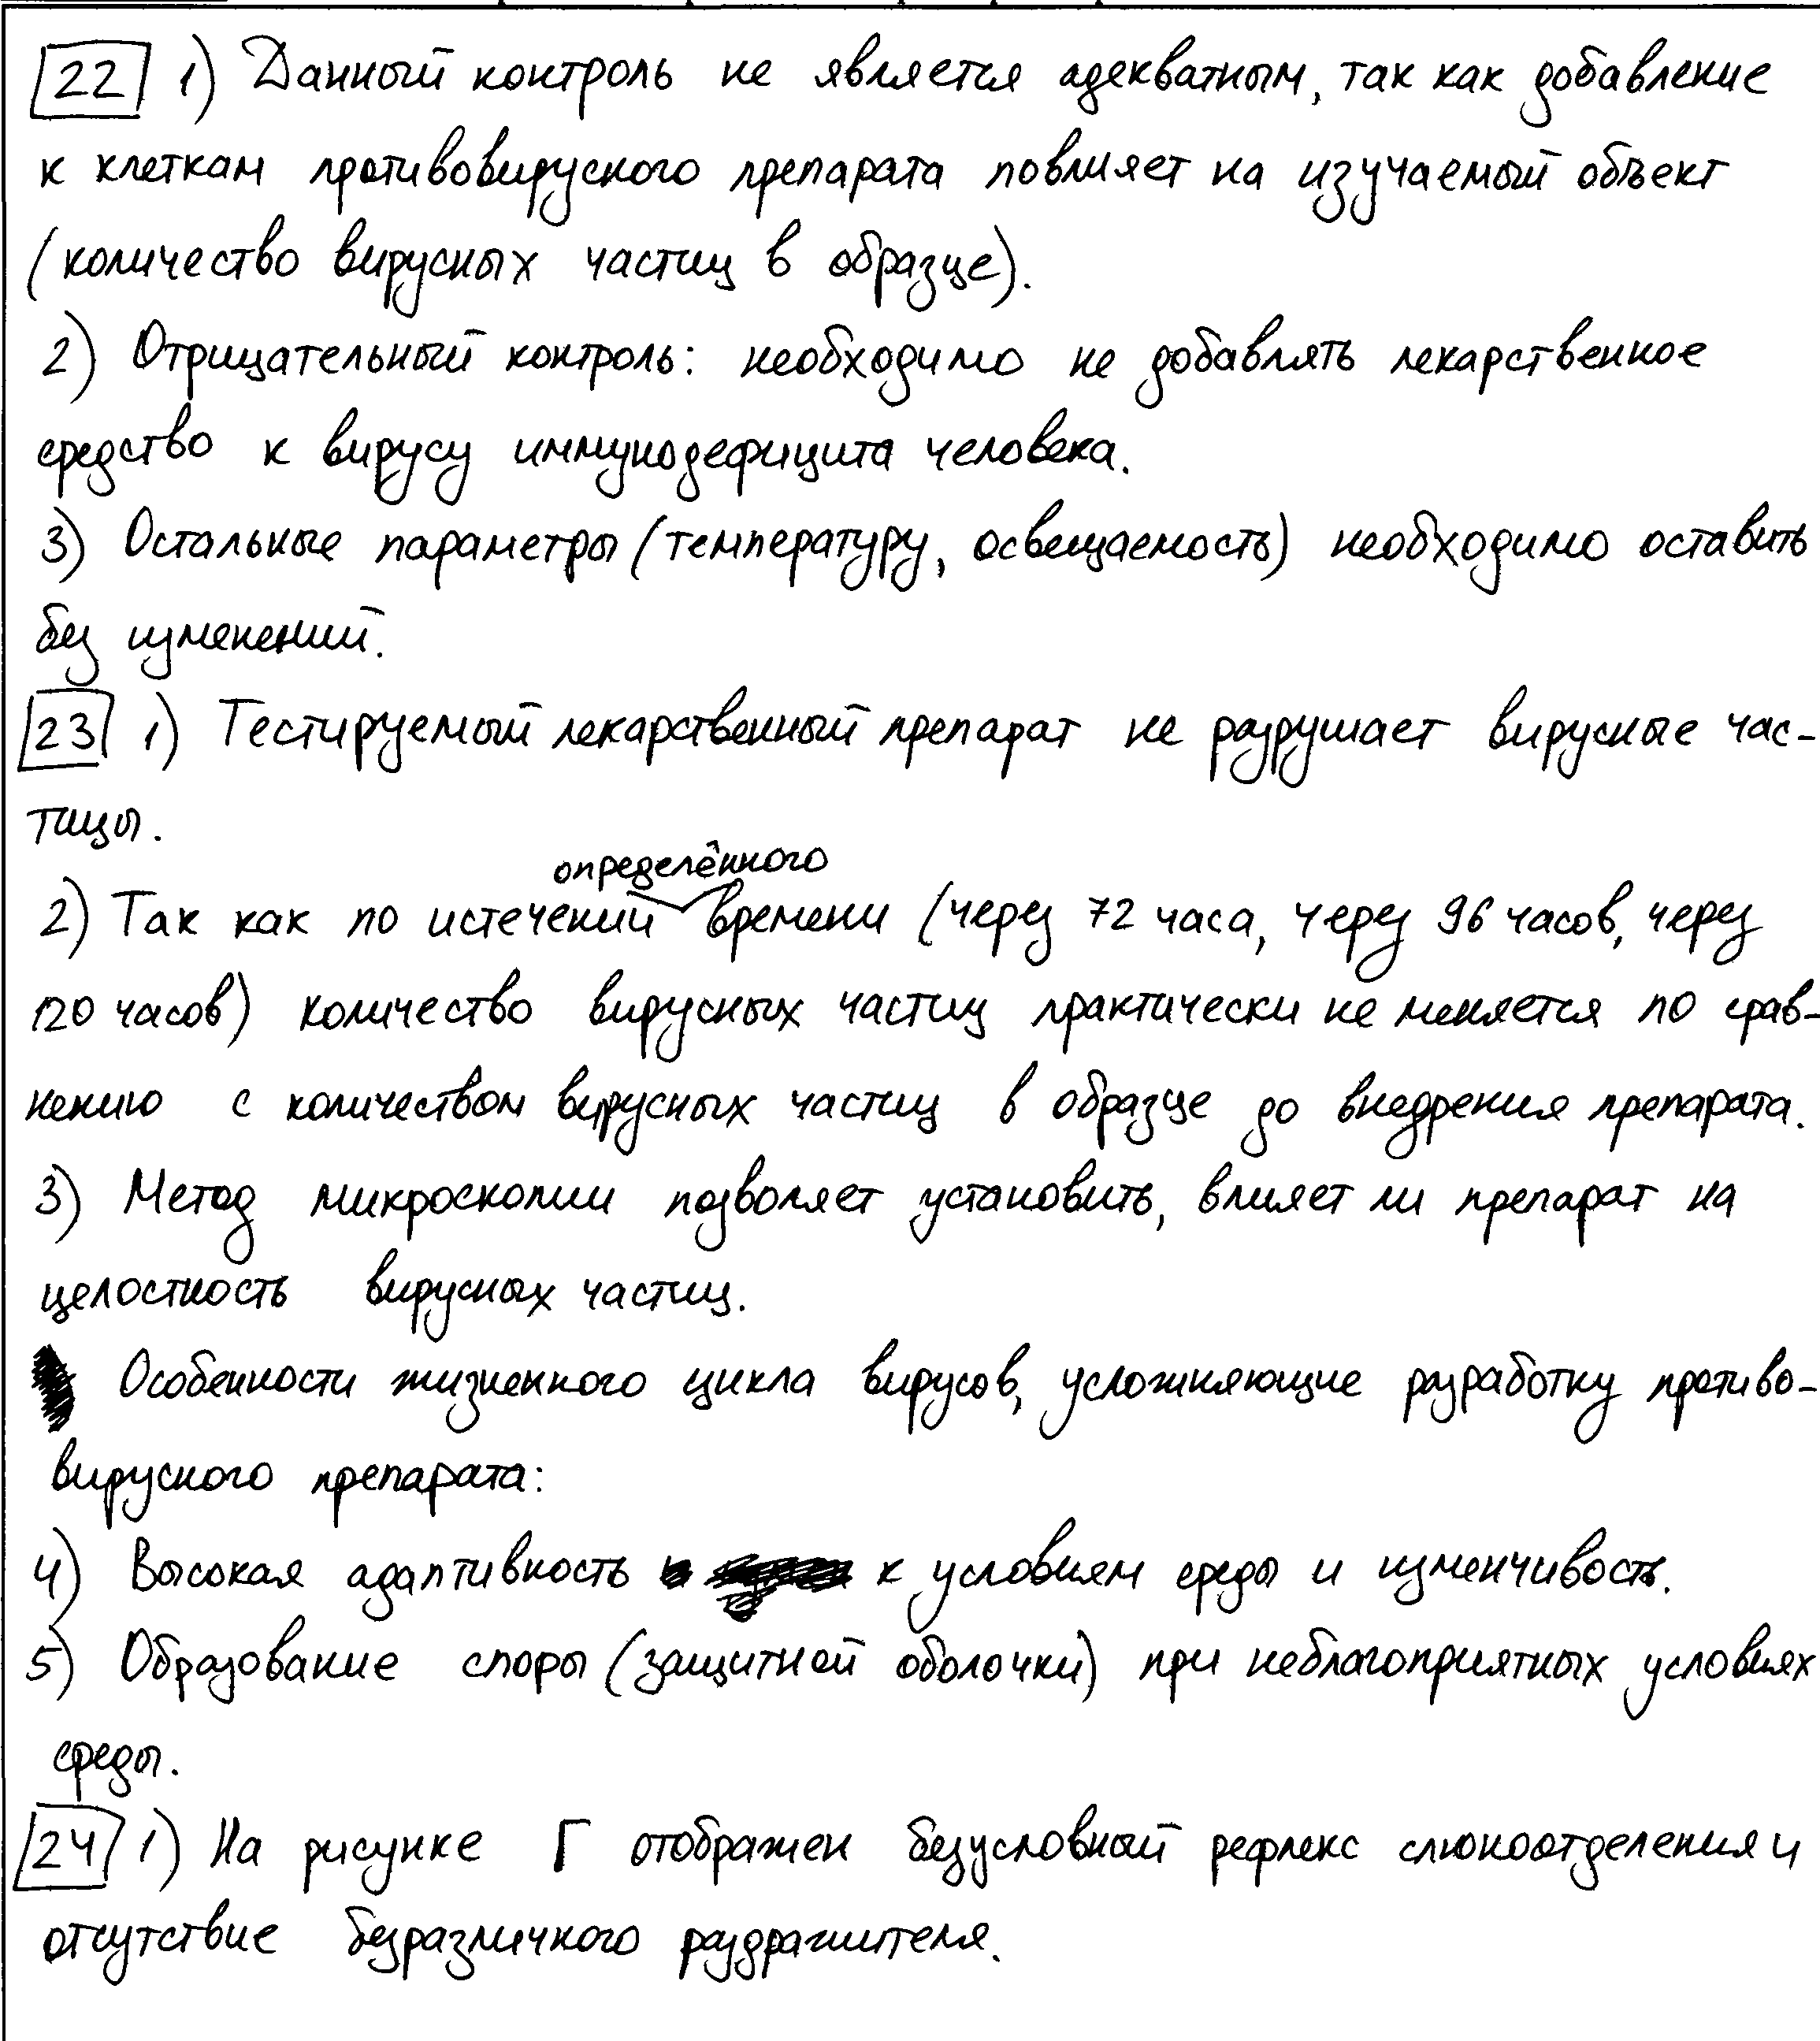 22 1) Данный контроль не является адекватным, так как добавление
к клеткам противовирусного препарата повлияет на изучаемый объект
(количество вирусных частиц в образце).
2) Отрицательный контроль: необходимо не добавлять лекарственное
средство к вирусу иммунодефицита человека.
3) Остальные параметры (температуру, освещаемость) необходимо оставить
без изменений.
23 1) Тестируемый лекарственный препарат не разрушает вирусные час-
тицы.
определённого
2) Так как по истечений времени (через 72 часа, через 96 часов, через
120 часов) количество вирусных частиц практически не меняется по срав-
нению с количеством вирусных частиц в образце до внедрения препарата.
3) Метод микроскопии позволяет установить, влияет ли препарат на
целостность вирусных частиц.
Особенности жизненного цикла вирусов, усложняющие разработку противо-
вирусного препарата:
4) Высокая адаптивность к условиям среды и изменчивость.
5) Образование споры (защитной оболочки) при неблагоприятных условиях
среды.
24 1) На рисунке Г отображен безусловный рефлекс слюноотделения и
отсутствие безразличного раздражителя.